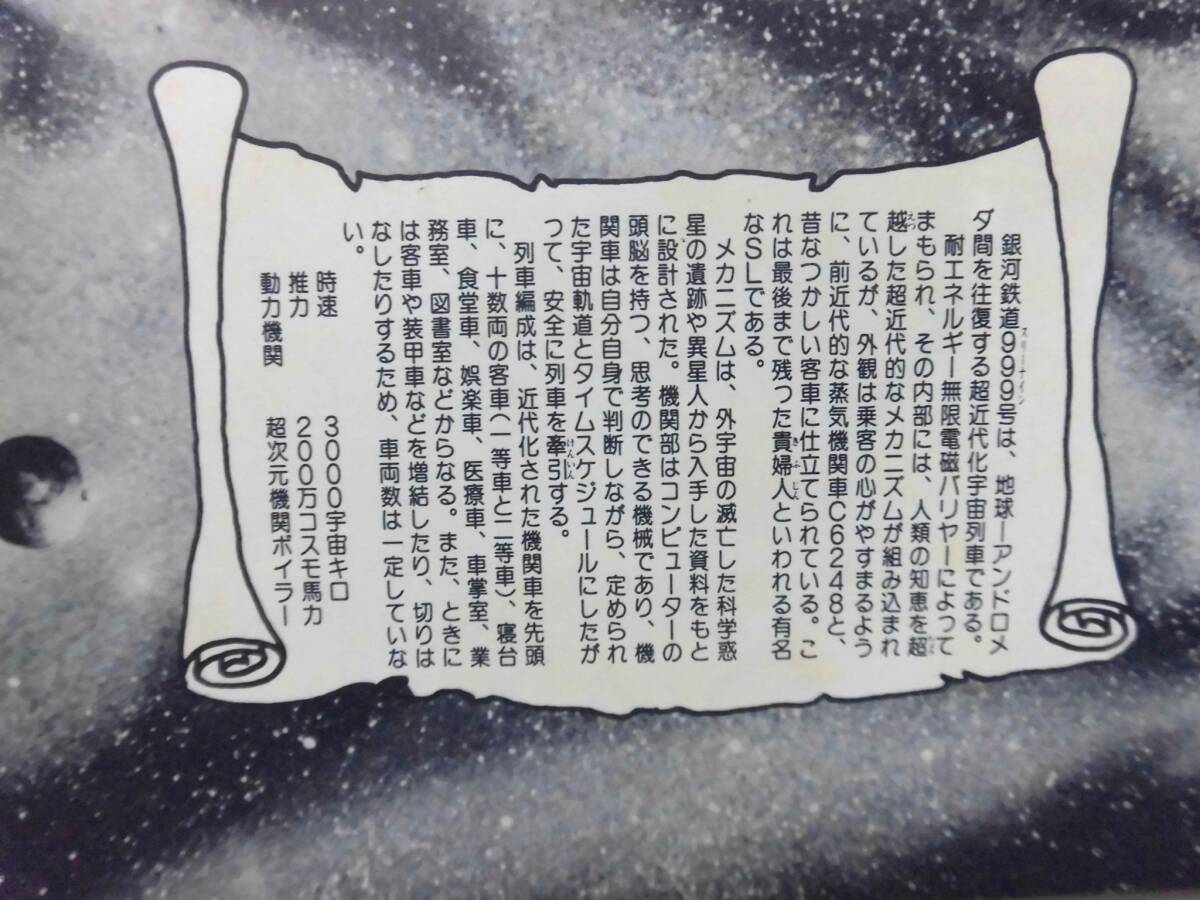 銀河鉄道999号は、地球ーアンドロメ
ダ間を往復する超近代化宇宙列車である。
耐エネルギー無限電磁バリヤーによって
まもられ、その内部には、人類の知恵を超
越した超近代的なメカニズムが組み込まれ
ているが、外観は乗客の心がやすまるよう
に、前近代的な蒸気機関車C6248と、
昔なつかしい客車に仕立てられている。こ
れは最後まで残った貴婦人といわれる有名
なSLである。
メカニズムは、外宇宙の滅亡した科学惑
星の遺跡や異星人から入手した資料をもと
に設計された。機関部はコンピューターの
頭脳を持つ、思考のできる機械であり、機
関車は自分自身で判断しながら、定められ
た宇宙軌道とタイムスケジュールにしたが
って、安全に列車を牽引する。
列車編成は、近代化された機関車を先頭
に、十数両の客車(一等車と二等車)、寝台
車、食堂車、娯楽車、医療車、車掌室、業
務室、図書室などからなる。また、ときに
は客車や装甲車などを増結したり、切りは
なしたりするため、車両数は一定していな
い。
時速 3000宇宙キロ
推力 200万コスモ馬力
動力機関 超次元機関ボイラー